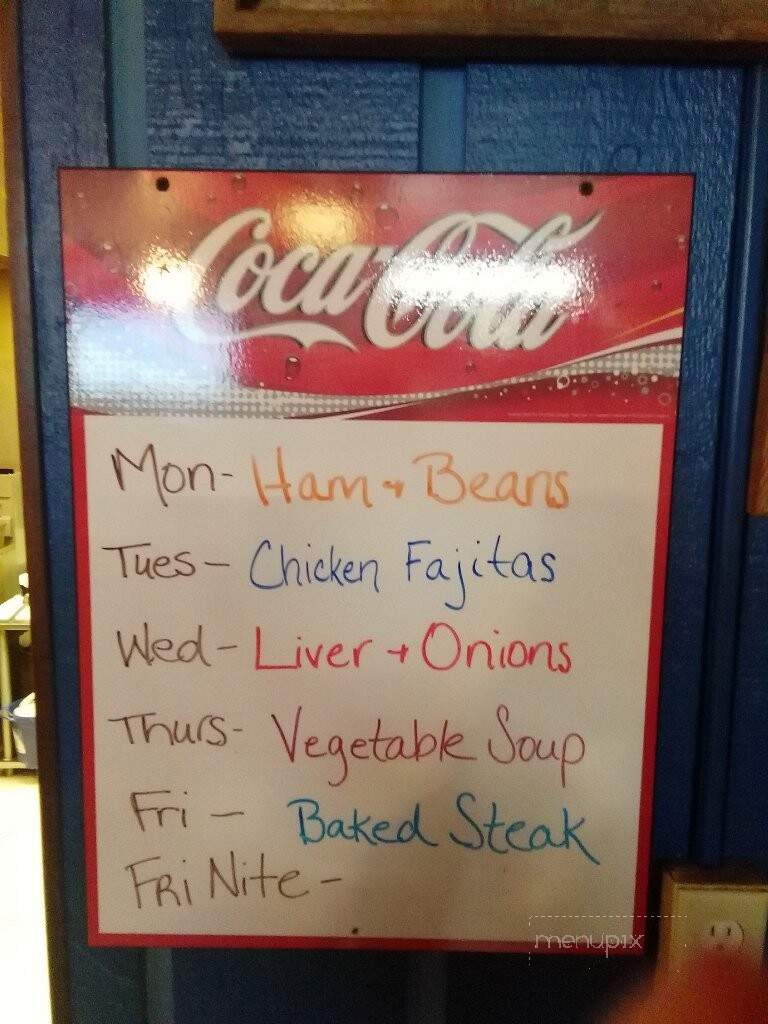 Coca-Cola
Mon- Ham + Beans
Tues- Chicken Fajitas
Wed- Liver + Onions
Thurs- Vegetable Soup
Fri - Baked Steak
Fri Nite -
menupix